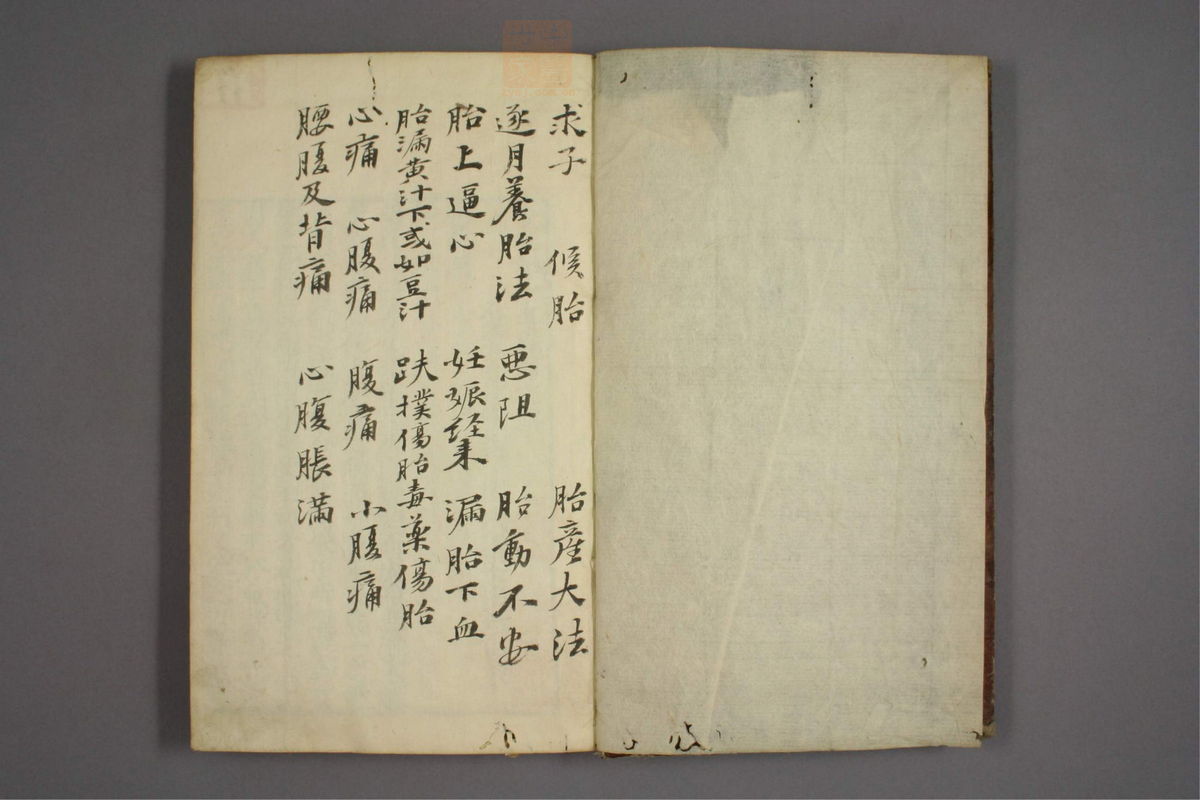 求子　候胎　胎産大法
逐月養胎法　悪阻　胎動不安
胎上逼心　妊娠経来　漏胎下血
胎漏黄汁下或如豆汁　跌撲傷胎毒薬傷胎
心痛　心腹痛　腹痛　小腹痛
腰腹及背痛　心腹脹満